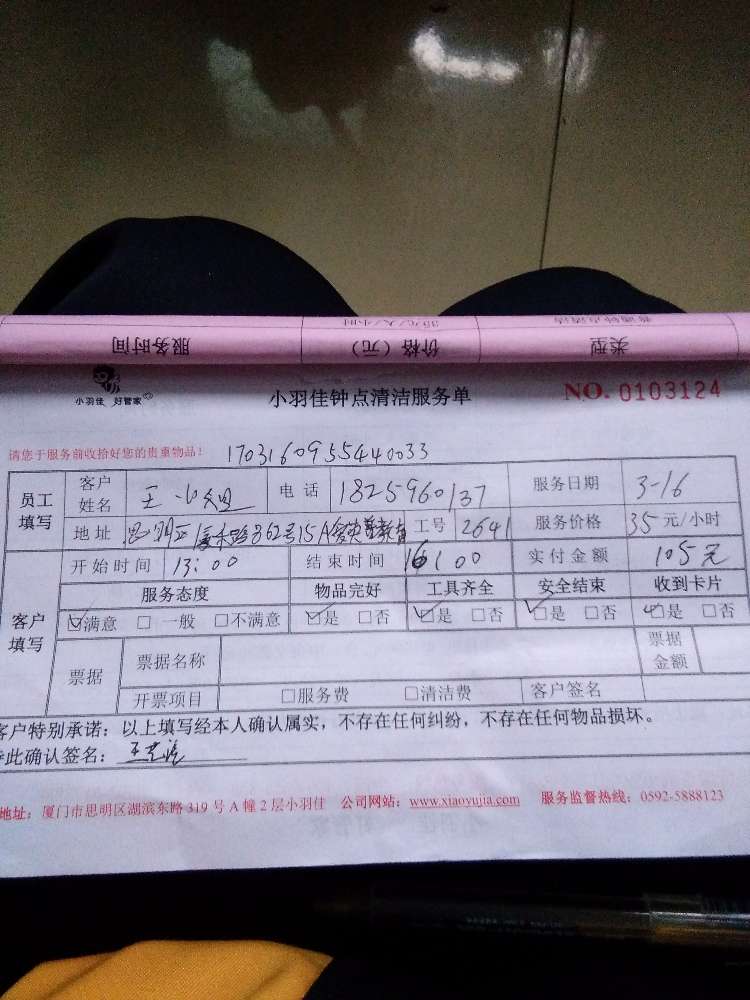 类型 价格（元） 服务时间
普通钟点清洁 35元/人/小时
小羽佳 好管家 小羽佳钟点清洁服务单 NO. 0103124
请您于服务前收拾好您的贵重物品！ 1703160955440033
员工填写 客户姓名 王小姐 电话 1825960137 服务日期 3-16
地址 思明区厦禾路862号15A 教育 工号 2641 服务价格 35元/小时
客户填写 开始时间 13:00 结束时间 16:00 实付金额 105元
服务态度 物品完好 工具齐全 安全结束 收到卡片
☑满意 □一般 □不满意 ☑是 □否 ☑是 □否 ☑是 □否 ☑是 □否
票据 票据名称 票据金额
开票项目 □服务费 □清洁费 客户签名
客户特别承诺：以上填写经本人确认属实，不存在任何纠纷，不存在任何物品损坏。
此确认签名：
地址：厦门市思明区湖滨东路319号A幢2层小羽佳 公司网站：www.xiaoyujia.com 服务监督热线：0592-5888123